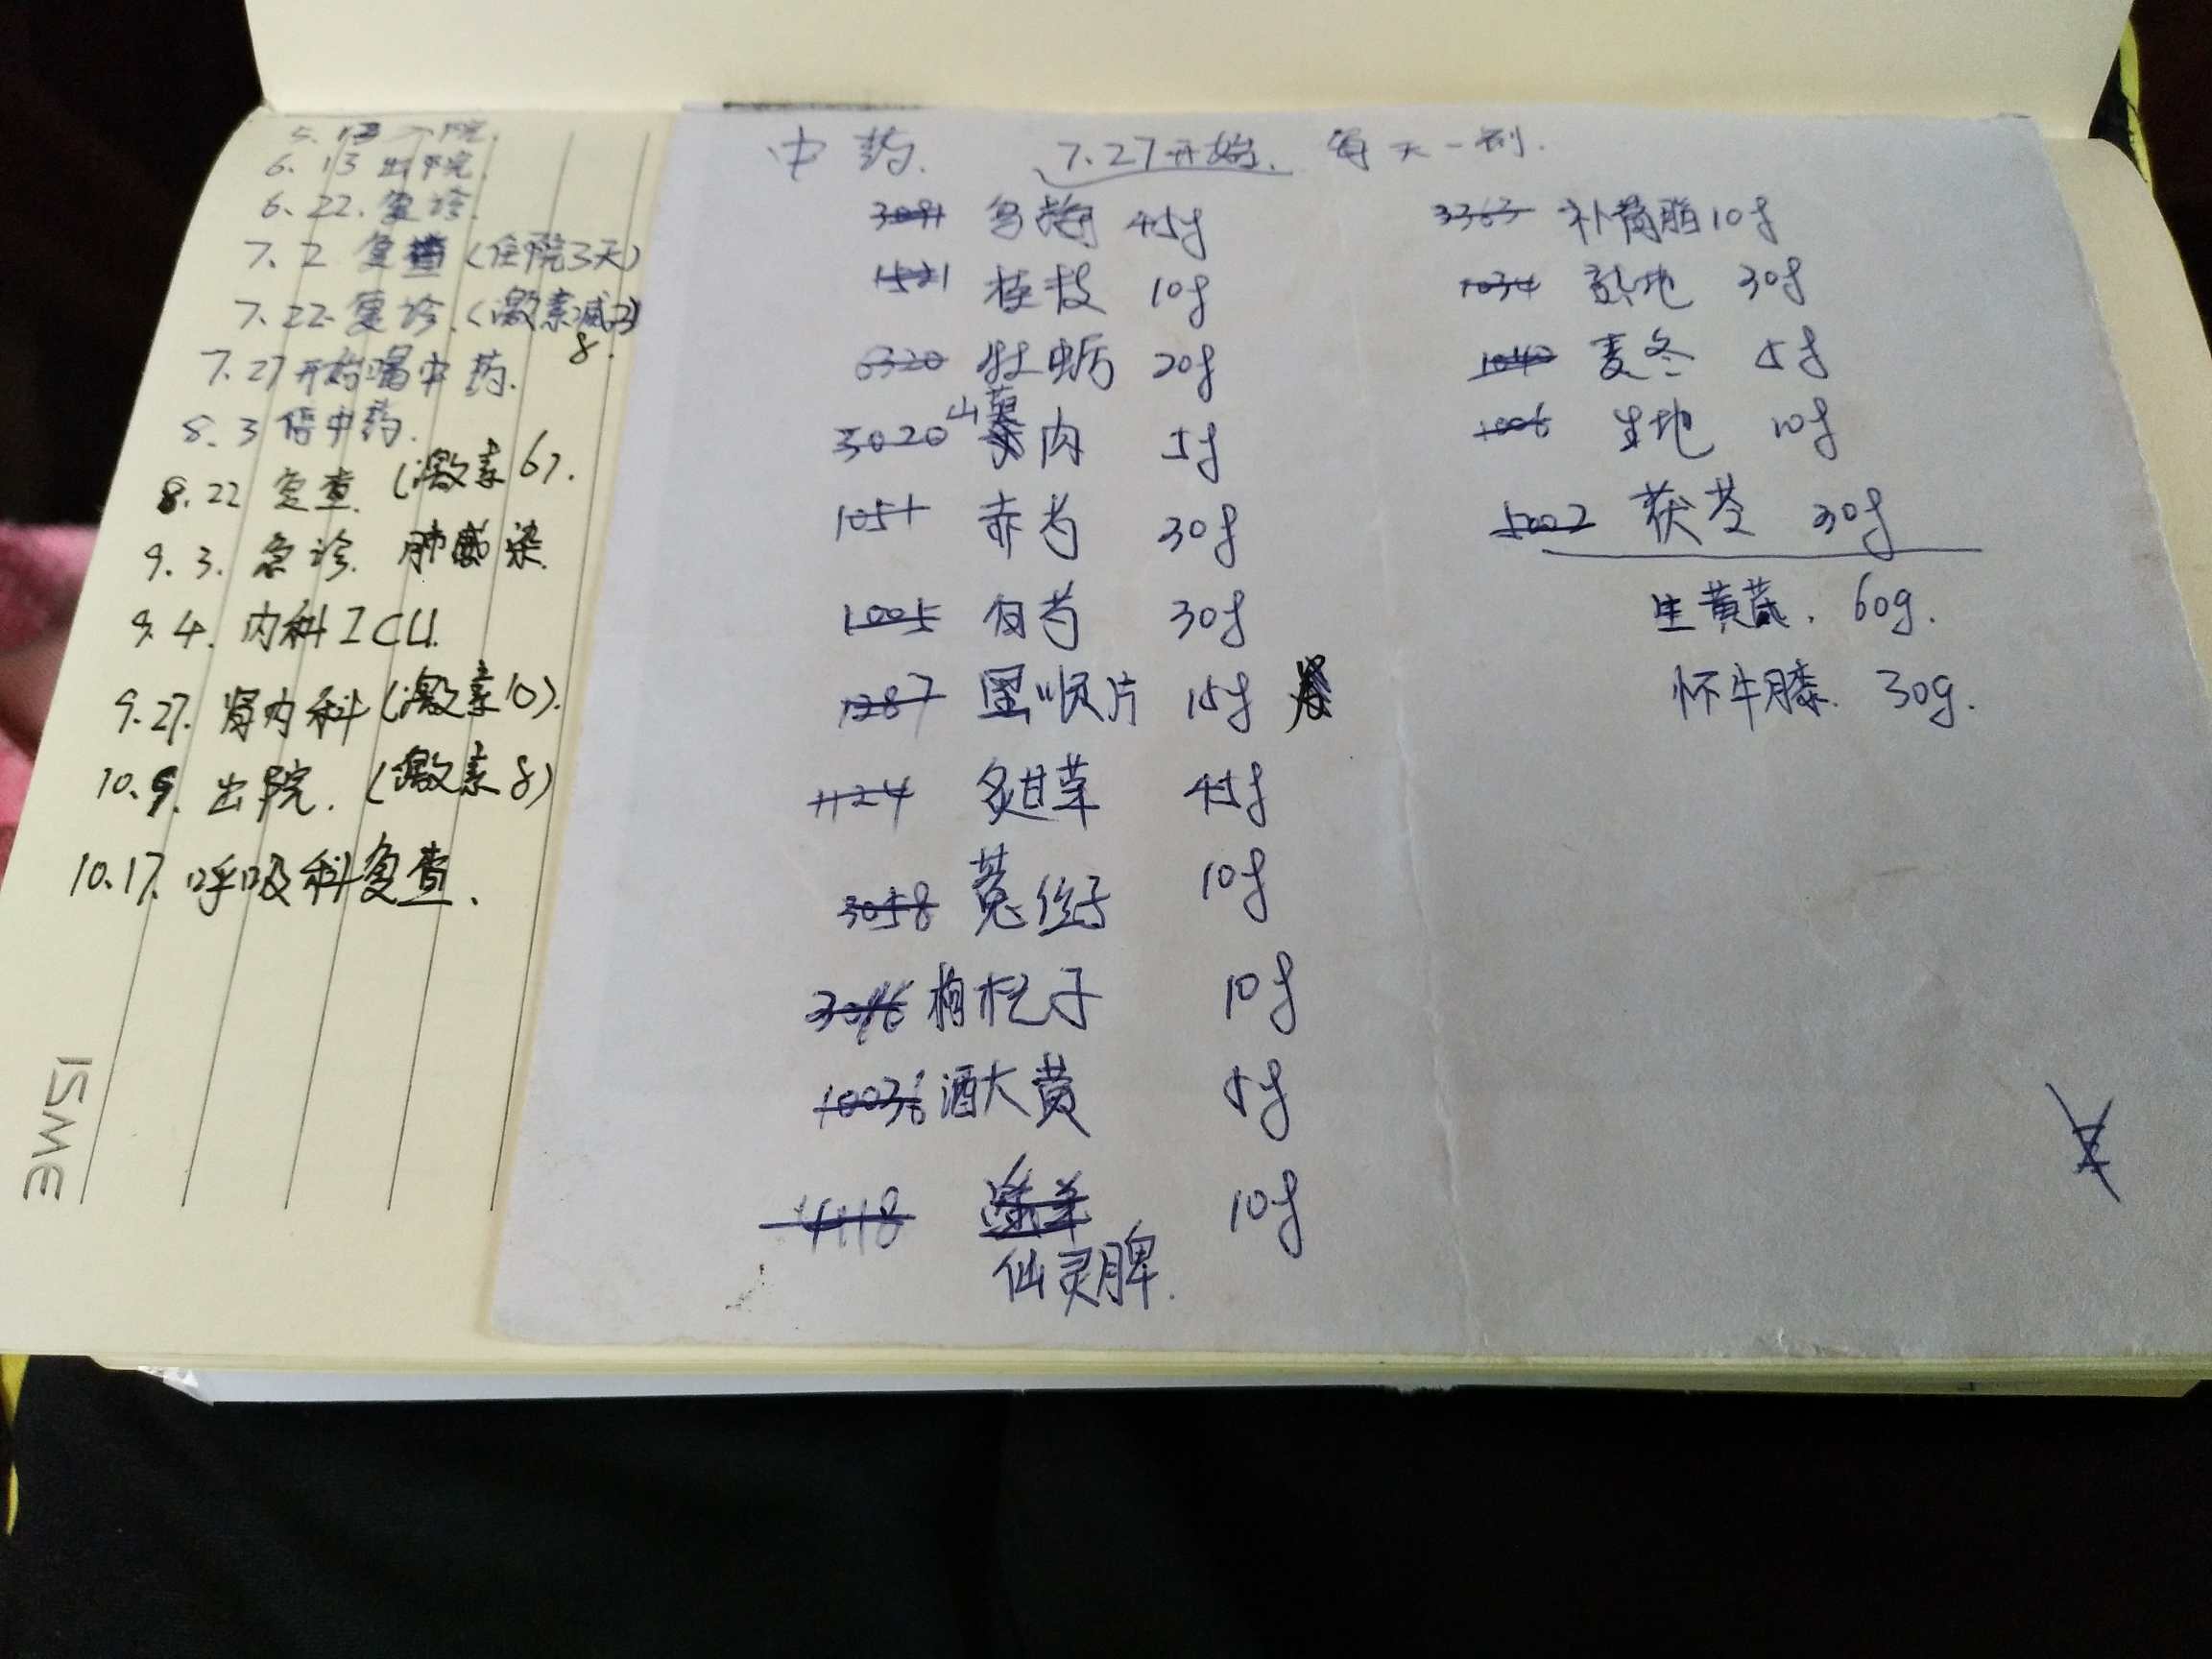 5.13 入院.
6.13 出院.
6.22. 复诊.
7.2 复查 (住院3天)
7.22. 复诊. (激素减
8.
7.27 开始喝中药.
8.3 停中药.
8.22 复查. (激素6).
9.3. 急诊. 肺感染.
9.4. 内科ICU.
9.27. 肾内科 (激素10).
10.9. 出院. (激素8)
10.17. 呼吸科复查.
ISME
中药. 7.27开始. 每天一剂.
乌梅 45g
1521 桂枝 10g
6320 牡蛎 20g
3020 山萸肉 5g
1051 赤芍 30g
1005 白芍 30g
1287 黑顺片 15g
1124 炙甘草 45g
3058 菟丝子 10g
枸杞子 10g
酒大黄 5g
4118 10g
仙灵脾.
3363 补骨脂 10g
1034 熟地 30g
1040 麦冬 5g
1006 生地 10g
5002 茯苓 30g
生黄芪. 60g.
怀牛膝. 30g.